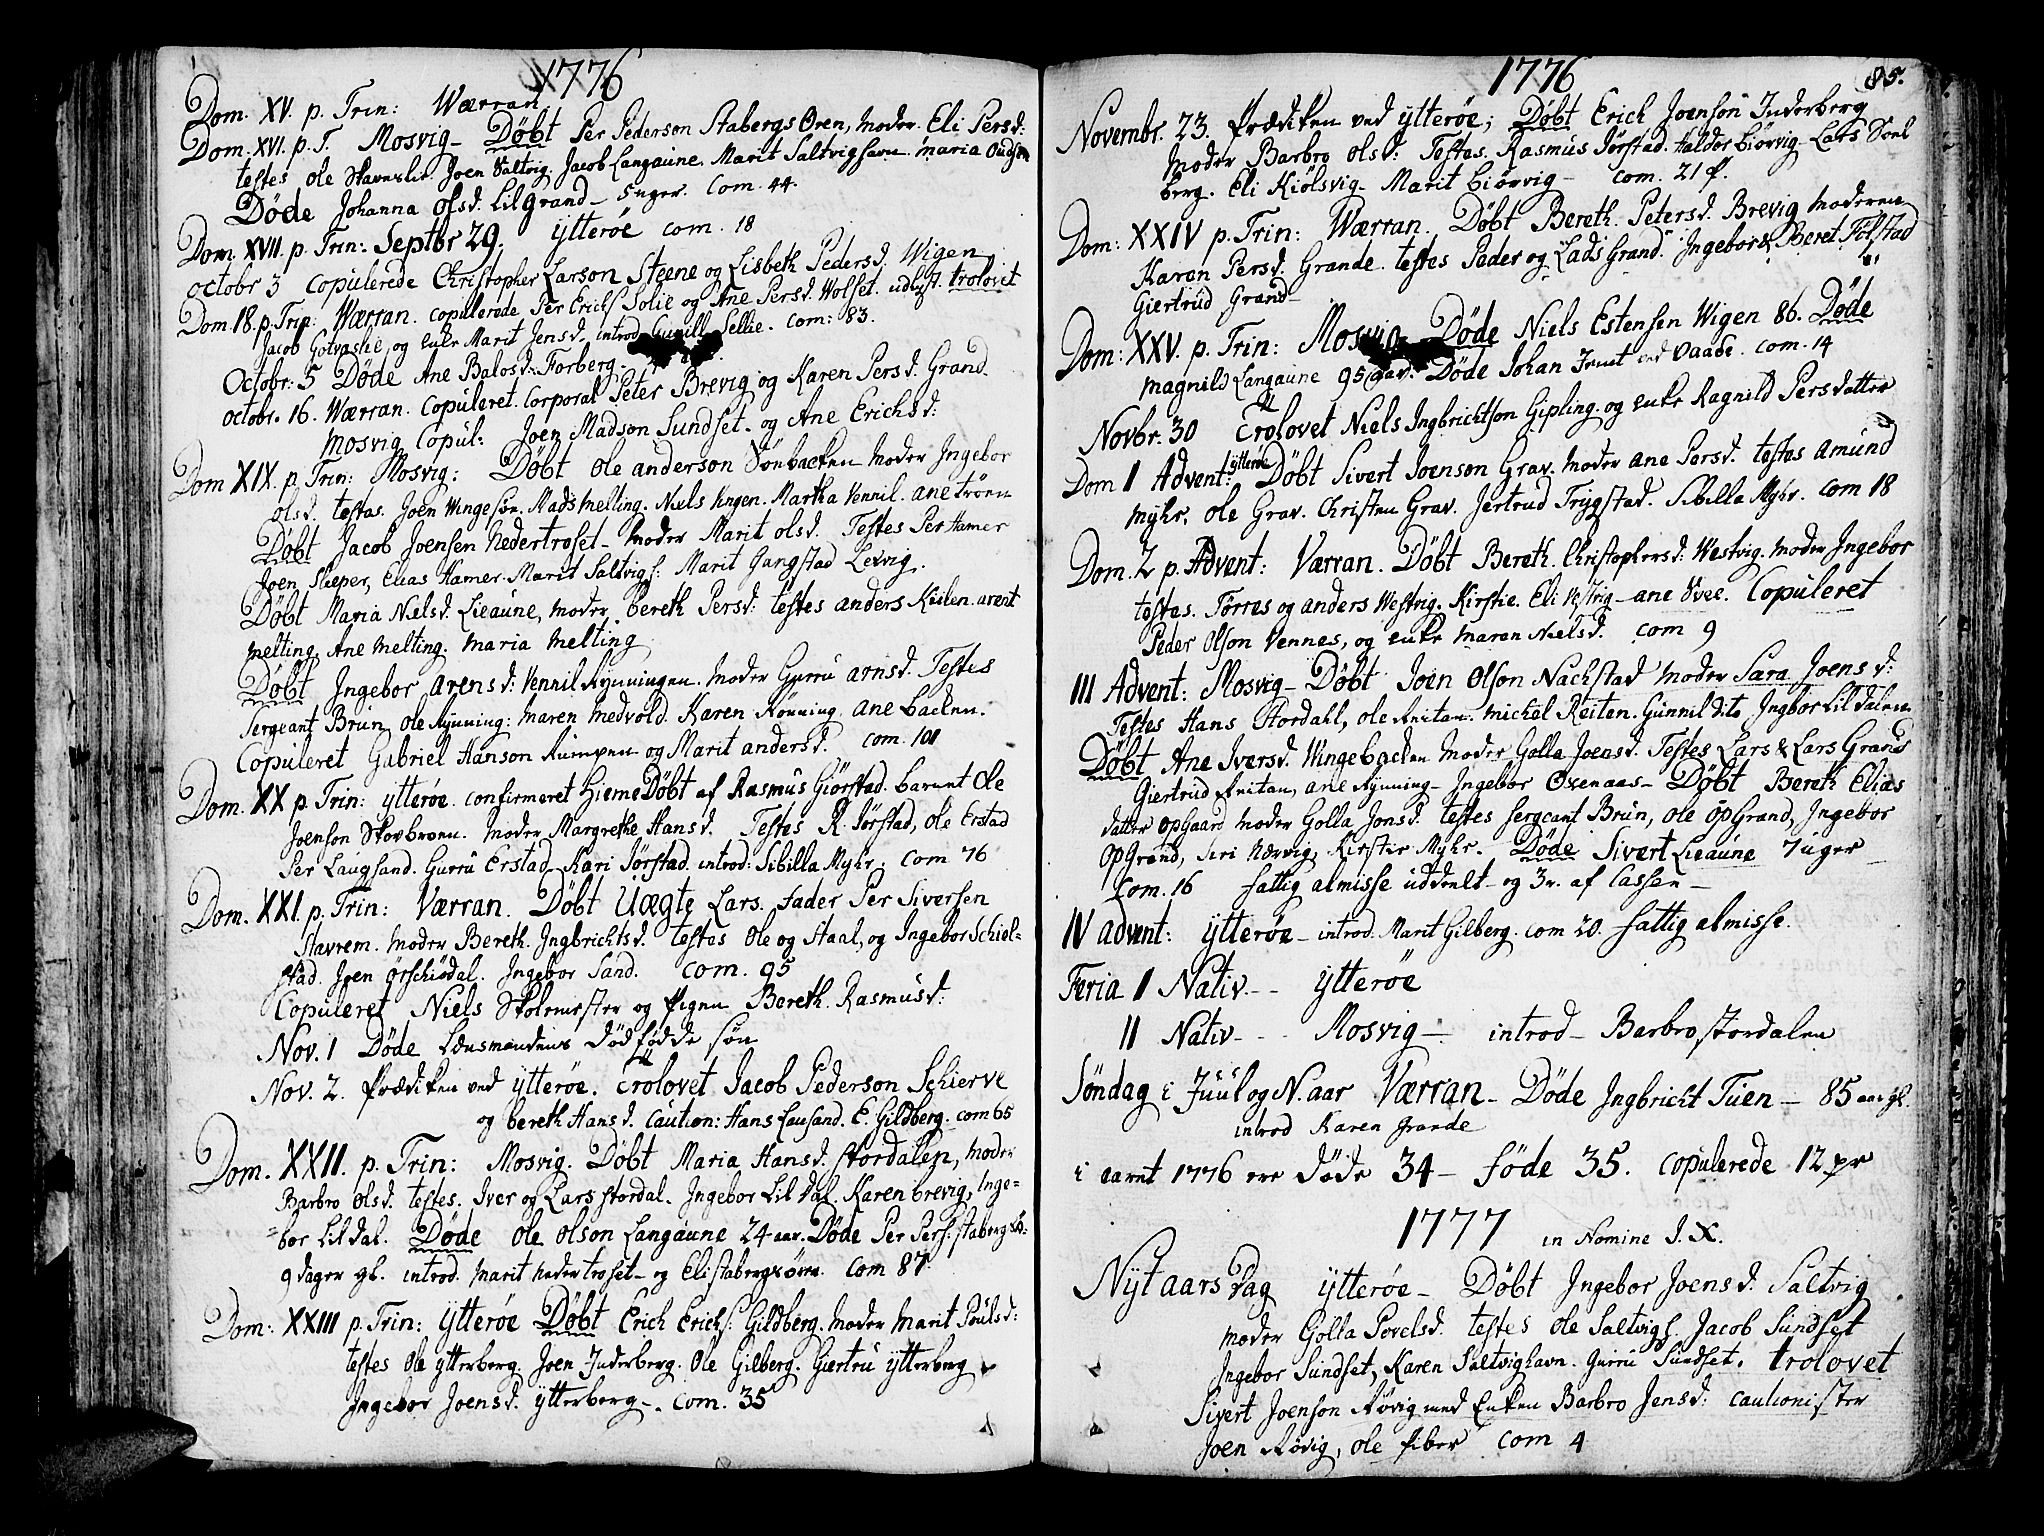 1776
Dom. XV. p. Trin: Wærran.
Dom. XVI. p. T. Mosvig - Døbt Per Pederson Stabergs Øren, moder. Eli Persd:
testes Ole Joen Saltvig. Jacob Langaune. Marit Saltvighavn. maria
Døde Johanna Olsd. Lilgrand - 5 uger. Com. 44.
Dom. XVII. p. Trin: Septbr 29. ytterøe com. 18
octobr 3 copulerede Christopher Larson Steene og Lisbeth Pedersd. Wigen
Dom. 18. p. Trin: Wærran. copulerede Per Erichs Solie og Ane Persd. Wolset. trolovet
Jacob og enke Marit Jensd. introd. Gunill Sellie. com: 83.
Octobr: 5 Døde Ane Balosd: Forberg -
octobr. 16. Wærran. Copuleret. Corporal Peter Brevig og Karen Persd. Grand.
Mosvig Copul: Joen Madson Sundset. og Ane Erichsd:
Dom XIX. p. Trin: Mosvig: Døbt Ole anderson Sønbacken moder Ingebor
olsd. testes. Joen Mads melting. Niels Vingen. Martha Vennil. ane trøen
Døbt Jacob Joensen Nedertroset - moder Marit olsd. Testes Per Hamer
Joen Sleeper, Elias Hamer. Marit Saltvigs: Marit Jangstad Lexvig.
Døbt Maria Nielsd. Lieaune, moder, bereth Persd: testes anders Kielen. arent
melting. Ane melting. maria melting
Døbt Ingebor arensd: Vennil Rynningen. moder Gurru arnsd. Testes
Sergeant Brun, ole Rynning: maren medvold. Karen Rønning. ane backen.
Copuleret Gabriel Hanson Rumpen og Marit andersd. com. 101
Dom. XX p. Trin: ytterøe. confirmeret HiemeDøbt af Rasmus Giørstad. barnet Ole
Joenson Skovbroen. moder Margrethe Hansd. Testes R. Jørstad, ole Erstad
Per Laugsand. Gurru Erstad. Kari Jørstad. introd: Sibilla Myhr. Com 76
Dom. XXI. p. Trin: Værran. Døbt Uægte Lars. Fader Per Siversen
Stavrem. moder Bereth. Ingbrichtsd. testes Ole og Staal, og Ingebor Schiel-
stad. Joen Ørschiødal. Ingebor Sand. com. 95
Copuleret Niels Skolemester og Pigen Bereth. Rasmusd:
Nov. 1 Døde Lænsmandens dødfødde søn
Nov. 2. Prædiken ved ytterøe. Trolovet Jacob Pederson Schierve
og bereth Hansd. caution: Hans Lausand. E. Gildberg. com 65
Dom. XXII. p. Trin: Mosvig. Døbt Maria Hansd. Stordalen, moder
Barbro olsd. testes. Iver og Lars stordal. Ingebor Lil dal. Karen brevig, Inge=
=bor Lildal. Døde Ole olson Langaune 24 aar. Døde Per Pers: stabergsø-
9 dager gl. introd. marit nedertroset - og Eli stabergsøren. Com 87
Dom: XXIII p. Trin: Ytterøe Døbt Erich Erichs: Gildberg. moder Marit Poulsd:
testes Ole ytterberg. Joen Inderberg. Ole Gilberg. Giertru ytterberg
Ingebor Joensd. ytterberg -. Com. 35
1776 85.
Novembr. 23. Prædiken ved ytterøe; Døbt Erich Joenson Inderberg
moder Barbro olsd: Testes. Rasmus Jørstad. Haldor biørvig - Lars Sonl
berg. Eli Kiølsvig - Marit biørvig - com. 21 P.
Dom: XXIV p. Trin: Wærran. Døbt Bereth. Petersd. Brevig moderen
Karen Persd. Grande. testes Peder og Lads Grand. Ingebor & Beret Folstad
Giertrud Grand -
Dom: XXV. p. Trin: Mosvig - Døde Niels Estensen Wigen 86. Døde
magnild Langaune 95 aar. Døde Johan ved Vaade. com. 14
Novbr. 30 Trolovet Niels Ingbrichtson Gipling. og enke Ragnild Persdatter
Dom I Advent: ytterøe Døbt Sivert Joenson Grav. moder ane Persd. testes amund
myhr. ole Grav. Christen Grav. Jertrud Trygstad. Sibilla Myhr. com 18
Dom. 2 p. Advent: Værran. Døbt Bereth. Christophersd: Westvig. moder Ingebor
testes. Torres og anders Westvig. Kirstie. Eli Vestvig - ane Svee. Copuleret
Peder Olson Vennes, og enke maren Nielsd. com 9
III Advent: Mosvig - Døbt Joen Olson Nachstad moder Sara Joensd:
Testes Hans Stordahl, ole Reitan. michel Reiten. Gunnil dito Ingbor Lildalen
Døbt Ane Iversd. Wingebacken moder Golla Joensd. Testes Lars & Lars Grand
Giertrud Reitan, ane Rynning - Ingebor Oxenaas - Døbt Bereth Elias
datter OpGaard moder Golla Jonsd. testes sergeant Brun, ole OpGrand, Ingebor
OpGrand, Siri Nærvig, Kirster Myhr. Døde Sivert Lieaune 7 uger
Com. 16 fattig almisse uddeelt - og 3 r. af Cassen -
IV advent: ytterøe - introd. Marit Gilberg. com 20. fattig almisse.
Feria I Nativ. - - ytterøe
II Nativ - - - Mosvig - introd - Barbro stordalen
Søndag i Juul og N. aar Værran - Døde Ingbricht Tuen - 85 aar gl.
introd Karen grande
i aaret 1776 ere døde 34 - føde 35. copulerede 12 par
1777 in Nomine J. X.
Nyt aars Dag ytterøe - Døbt Ingebor Joensd. Saltvig
moder Golla Povelsd. testes ole Saltvigs. Jacob Sundset
Ingebor Sundset, Karen Saltvighavn. Gurru Sundset. trolovet
Sivert Joenson Røvig med Enken Barbro Jensd: cautionister
Joen Røvig, ole Piber com 4